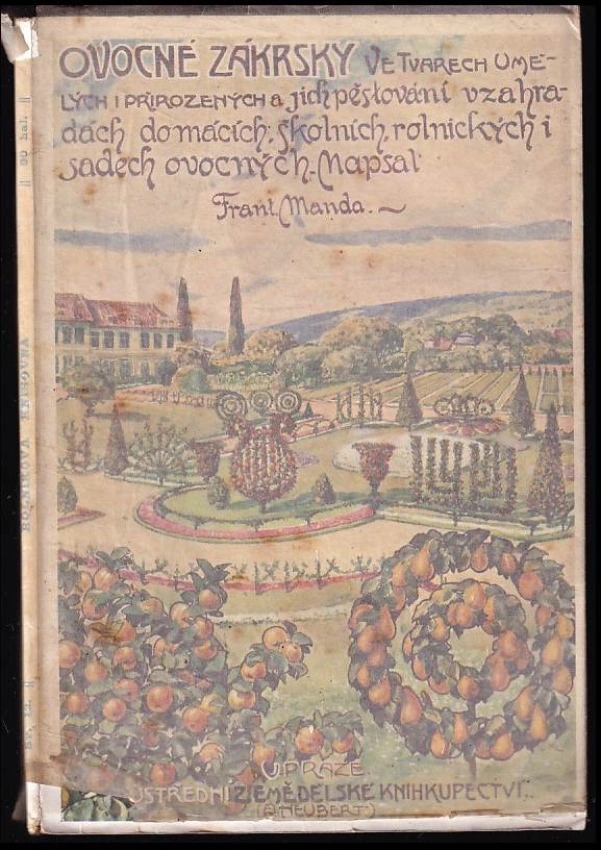 OVOCNÉ ZÁKRSKY VE TVARECH UMĚ-
LÝCH I PŘIROZENÝCH a jich pěstování v zahra-
dách domácích, školních, rolnických i
sadech ovocných. Napsal
Frant. Manda.
V PRAZE.
ÚSTŘEDNÍ ZEMĚDĚLSKÉ KNIHKUPECTVÍ.
(A. NEUBERT)
ROLNÍKOVA KNIHOVNA